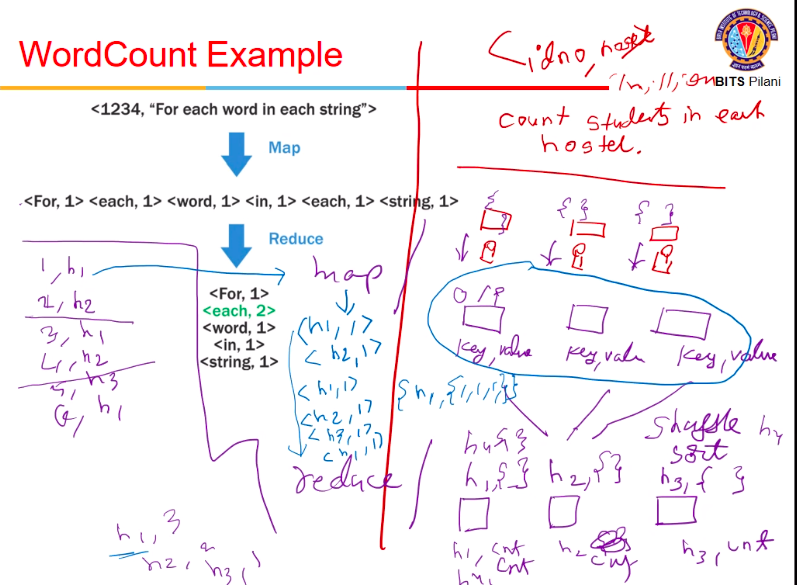 WordCount Example
BITS Pilani
<1234, "For each word in each string">
Map
<For, 1> <each, 1> <word, 1> <in, 1> <each, 1> <string, 1>
Reduce
<For, 1>
<each, 2>
<word, 1>
<in, 1>
<string, 1>
1, h1
2, h2
3, h1
4, h2
5, h3
6, h1
map
<h1, 1>
<h2, 1>
<h1, 1>
<h2, 1>
<h3, 1>
<h1, 1>
reduce
h1, 3
h2, 2
h3, 1
<idno,
count students in each
hostel.
{ }
{ }
{ }
O/P
key, value
key, valu
key, value
{h1, {1,1,1}}
shuffle
sort
h4
h4 { }
h1, { }
h2, { }
h3, { }
h1, cnt
h4, cnt
h2
h3, cnt